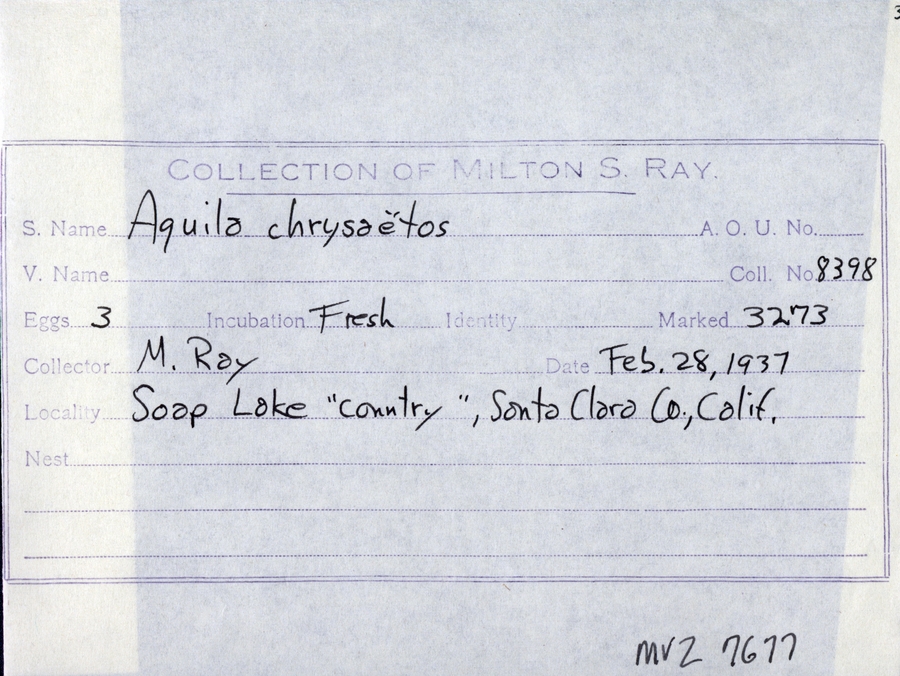 3
COLLECTION OF MILTON S. RAY.
S. Name Aquila chrysaëtos A. O. U. No.
V. Name Coll. No. 8398
Eggs 3 Incubation Fresh Identity Marked 3273
Collector M. Ray Date Feb. 28, 1937
Locality Soap Lake "country", Santa Clara Co., Calif.
Nest
MVZ 7677